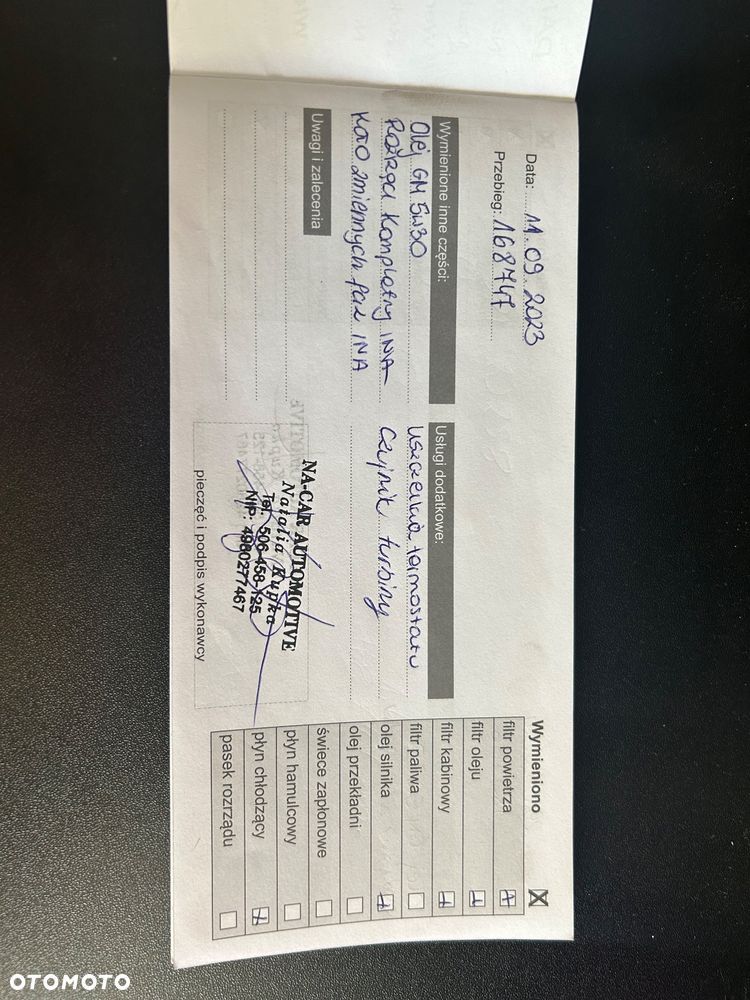 Data: 11.09.2023
Przebieg: 168747
Wymienione inne części:
Olej GM 5W30
Rozrząd kompletny INA
Koło zmiennych faz INA
Uwagi i zalecenia
Usługi dodatkowe:
Uszczelka termostatu
Czujnik turbiny
NA-CAR AUTOMOTIVE
Natalia Kupka
Tel. 506-458-125
NIP: 4980277467
pieczęć i podpis wykonawcy
Wymieniono X
filtr powietrza
filtr oleju
filtr kabinowy
filtr paliwa
olej silnika
olej przekładni
świece zapłonowe
płyn hamulcowy
płyn chłodzący
pasek rozrządu
OTOMOTO